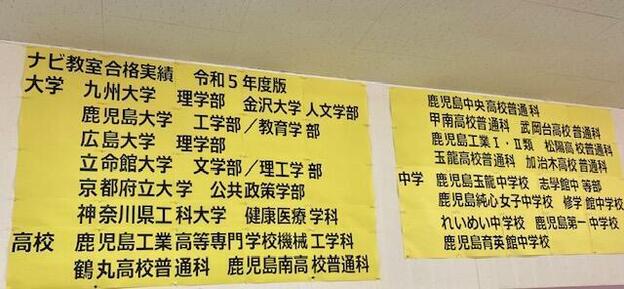 ナビ教室合格実績 令和5年度版
大学 九州大学 理学部 金沢大学 人文学部
鹿児島大学 工学部/教育学部
広島大学 理学部
立命館大学 文学部/理工学部
京都府立大学 公共政策学部
神奈川県工科大学 健康医療学科
高校 鹿児島工業高等専門学校機械工学科
鶴丸高校普通科 鹿児島南高校普通科
鹿児島中央高校普通科
甲南高校普通科 武岡台高校普通科
鹿児島工業Ⅰ・Ⅱ類 松陽高校普通科
玉龍高校普通科 加治木高校普通科
中学 鹿児島玉龍中学校 志學館中等部
鹿児島純心女子中学校 修学館中学校
れいめい中学校 鹿児島第一中学校
鹿児島育英館中学校